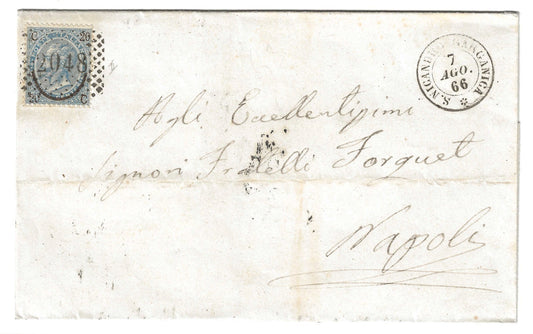 C 20
2048
20 C
S. NICANDRO GARGANICA
7
AGO.
66
Agli Eccellentissimi
Signori Fratelli Forquet
Napoli